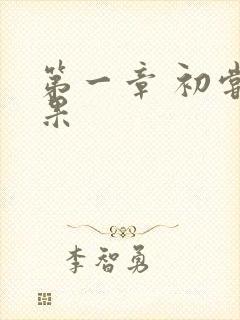 第一章 初尝
果
李智勇